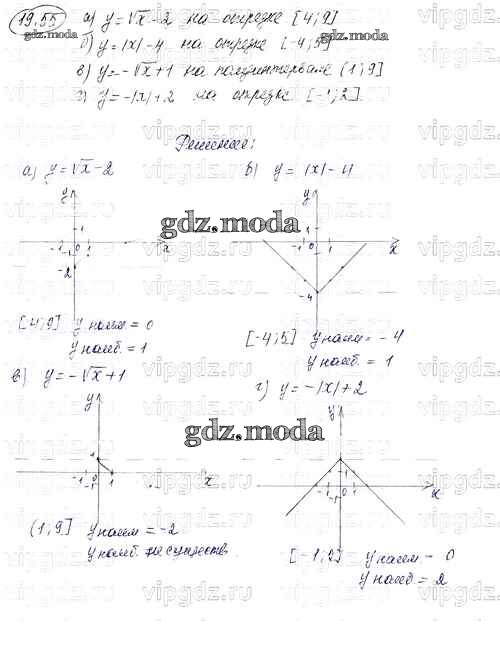 19.55 а) y = √x - 2 на отрезке [4; 9]
б) y = |x| - 4 на отрезке [-4; 5]
в) y = -√x + 1 на полуинтервале (1; 9]
г) y = -|x| + 2 на отрезке [-1; 2].
gdz.moda
gdz.moda
Решение:
а) y = √x - 2
б) y = |x| - 4
y
y
1
1
gdz.moda
-1 0 1 x
-1 0 1 x
-2
-4
[4; 9] y наим = 0
y наиб. = 1
[-4; 5] y наим = -4
y наиб. = 1
в) y = -√x + 1
г) y = -|x| + 2
y
y
gdz.moda
1
-1 0 1 x
-1 0 1 x
-1
-1
(1; 9] y наим = -2
y наиб. не существ.
[-1; 2] y наим = 0
y наиб = 2
vipgdz